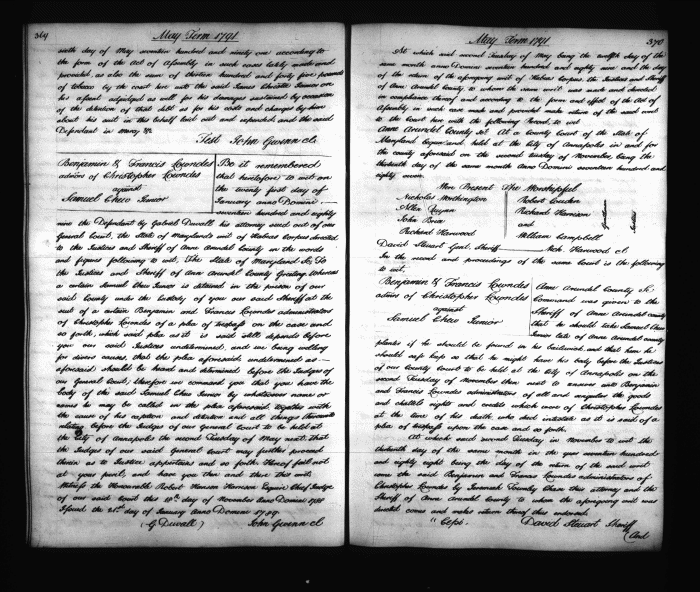 369
May Term 1791
sixth day of May seventeen hundred and ninety one according to
the form of the Act of Assembly in such cases lately made and
provided, as also the sum of thirteen hundred and forty five pounds
of tobacco by the court here unto the said James Chralle Junior on
his assent adjudged as well for his damages sustained by occasion
of the detention of that debt as for his costs and charges by him
about his suit in this behalf laid out and expended, and the said
Defendant in mercy &c
Test John Gwinn cl.
Benjamin & Francis Lowndes
admors of Christopher Lowndes
against
Samuel Chew Junior
Be it remembered
that heretofore to wit on
the twenty first day of
January anno Domini
seventeen hundred and eighty
nine the Defendant by Gabriel Duvall his attorney sued out of our
General Court, the State of Maryland's writ of Habeas Corpus directed
to the Justices and Sheriff of Ann Arundel County in the words
and figures following to wit, The State of Maryland Sc To
the Justices and Sheriff of Ann Arundel County Greeting Whereas
a certain Samuel Chew Junior is detained in the prison of our
said County under the Custody of you our said Sheriff at the
suit of a certain Benjamin and Francis Lowndes administrators
of Christopher Lowndes of a plea of trespass on the case and
so forth, which said plea as it is said still depends before
you our said Justices undetermined, and we being willing
for divers causes, that the plea aforesaid undetermined as
aforesaid should be heard and determined before the Judges of
our General Court; therefore we command you that you have the
body of the said Samuel Chew Junior by whatsoever name or
names he may be called in the plea aforesaid together with
the cause of his caption and detention and all things thereunto
relating before the Judges of our General Court to be held at
the City of Annapolis the second Tuesday of May next, that
the Judges of our said General Court may further proceed
therein as to Justice appertains and so forth. Hereof fail not
at your peril, and have you then and there this writ.
Witness the Honourable Robert Hanson Harrison Esquire Chief Judge
of our said Court this 10th day of November Anno Domini 1788
Issued the 21st day of January Anno Domini 1789.
(G Duvall) John Gwinn cl
May Term 1791
370
At which said second Tuesday of May being the twelfth day of the
same month anno Domini seventeen hundred and eighty nine and the day
of the return of the aforegoing writ of Habeas Corpus, the Justices and Sheriff
of Ann Arundel County to whom the same writ was made and directed
in compliance thereof and according to the form and effect of the Act of
Assembly in such case made and provided make return of the said writ
to the Court here with the following Record, to wit
Anne Arundel County Sc. At a County Court of the State of
Maryland begun and held at the City of Annapolis in and for
the county aforesaid on the second Tuesday of November, being the
thirteenth day of the same month Anno Domini seventeen hundred and
eighty seven.
Were Present The Worshipful
Nicholas Worthington
Allen Quynn
John
Richard Harwood
Robert Couden
Richard Harrison
and
William Campbell
Justices
David Steuart Gent. Sheriff Nich. Harwood cl.
In the record and proceedings of the same court is the following
to wit,
Benjamin & Francis Lowndes
admors of Christopher Lowndes
against
Samuel Chew Junior
Ann Arundel County Sc.
Command was given to the
Sheriff of Ann Arundel county
that he should take Samuel Chew
Junior late of Ann Arundel county
planter if he should be found in his bailiwick and that him he
should safe keep so that he might have his body before the Justices
of our County Court to be held at the City of Annapolis on the
second Tuesday of November then next to answer unto Benjamin
and Francis Lowndes administrators of all and singular the goods
and chattels rights and credits which were of Christopher Lowndes
at the time of his death who died intestate as it is said of a
plea of trespass upon the case and so forth.
At which said second Tuesday in November to wit the
thirteenth day of the same month in the year seventeen hundred
and eighty eight being the day of the return of the said writ
came the said Benjamin and Francis Lowndes administrators of
Christopher Lowndes by Jeremiah Townley Chase their attorney and the
Sheriff of Ann Arundel County to whom the aforegoing writ was
directed comes and makes return thereof thus endorsed
"Cepi. David Steuart Sheriff
And